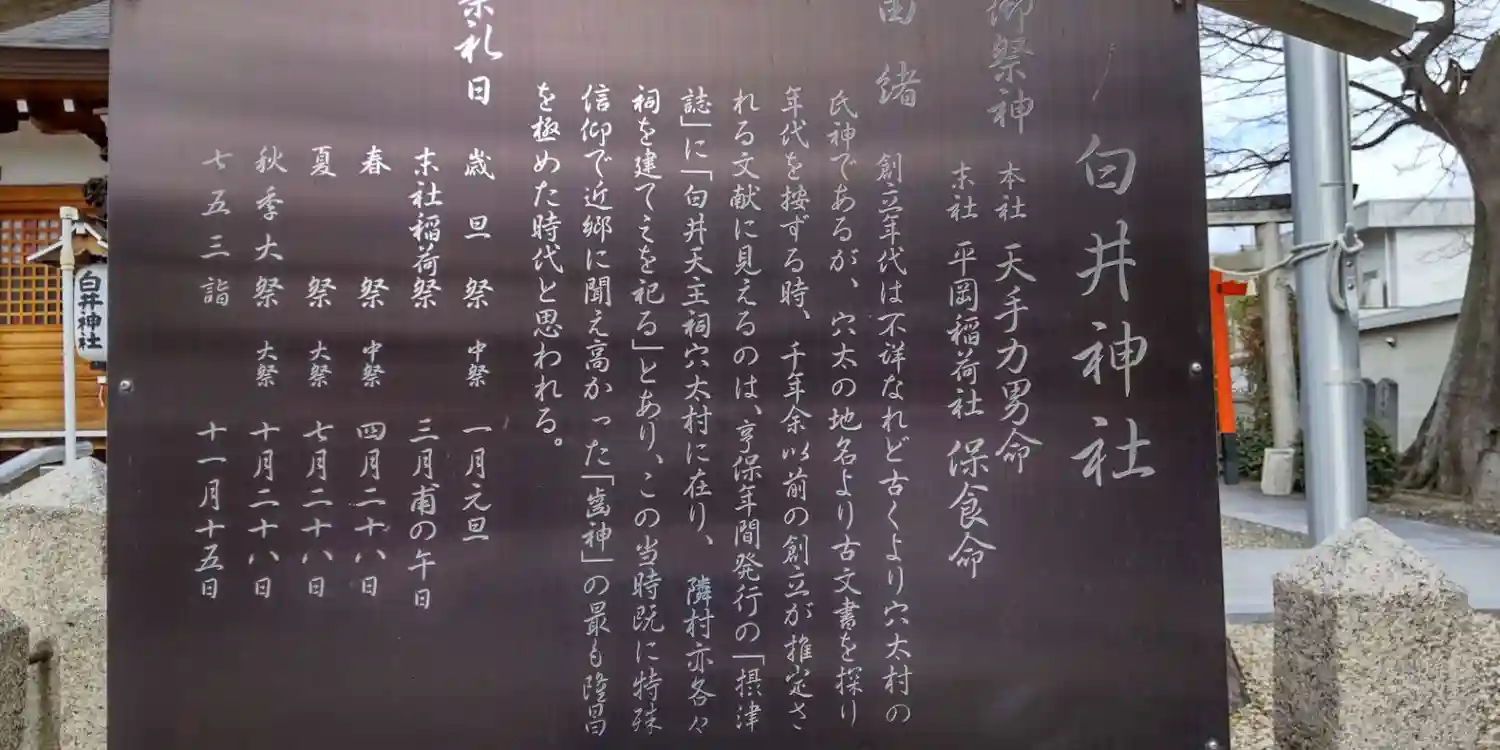 白井神社
御祭神 本社 天手力男命
末社 平岡稲荷社 保食命
由緒 創立年代は不詳なれど古くより穴太村の
氏神であるが、穴太の地名より古文書を探り
年代を按ずる時、千年余以前の創立が推定さ
れる文献に見えるのは、享保年間発行の「摂津
誌」に「白井天王祠穴太村に在り、隣村亦各々
祠を建てこを祀る」とあり、この当時既に特殊
信仰で近郷に聞え高かった「歯神」の最も隆昌
を極めた時代と思われる。
祭礼日
歳旦祭 中祭 一月元旦
末社稲荷祭 三月甫の午日
春祭 中祭 四月二十八日
夏祭 大祭 七月二十八日
秋季大祭 大祭 十月二十八日
七五三詣 十一月十五日
白井神社